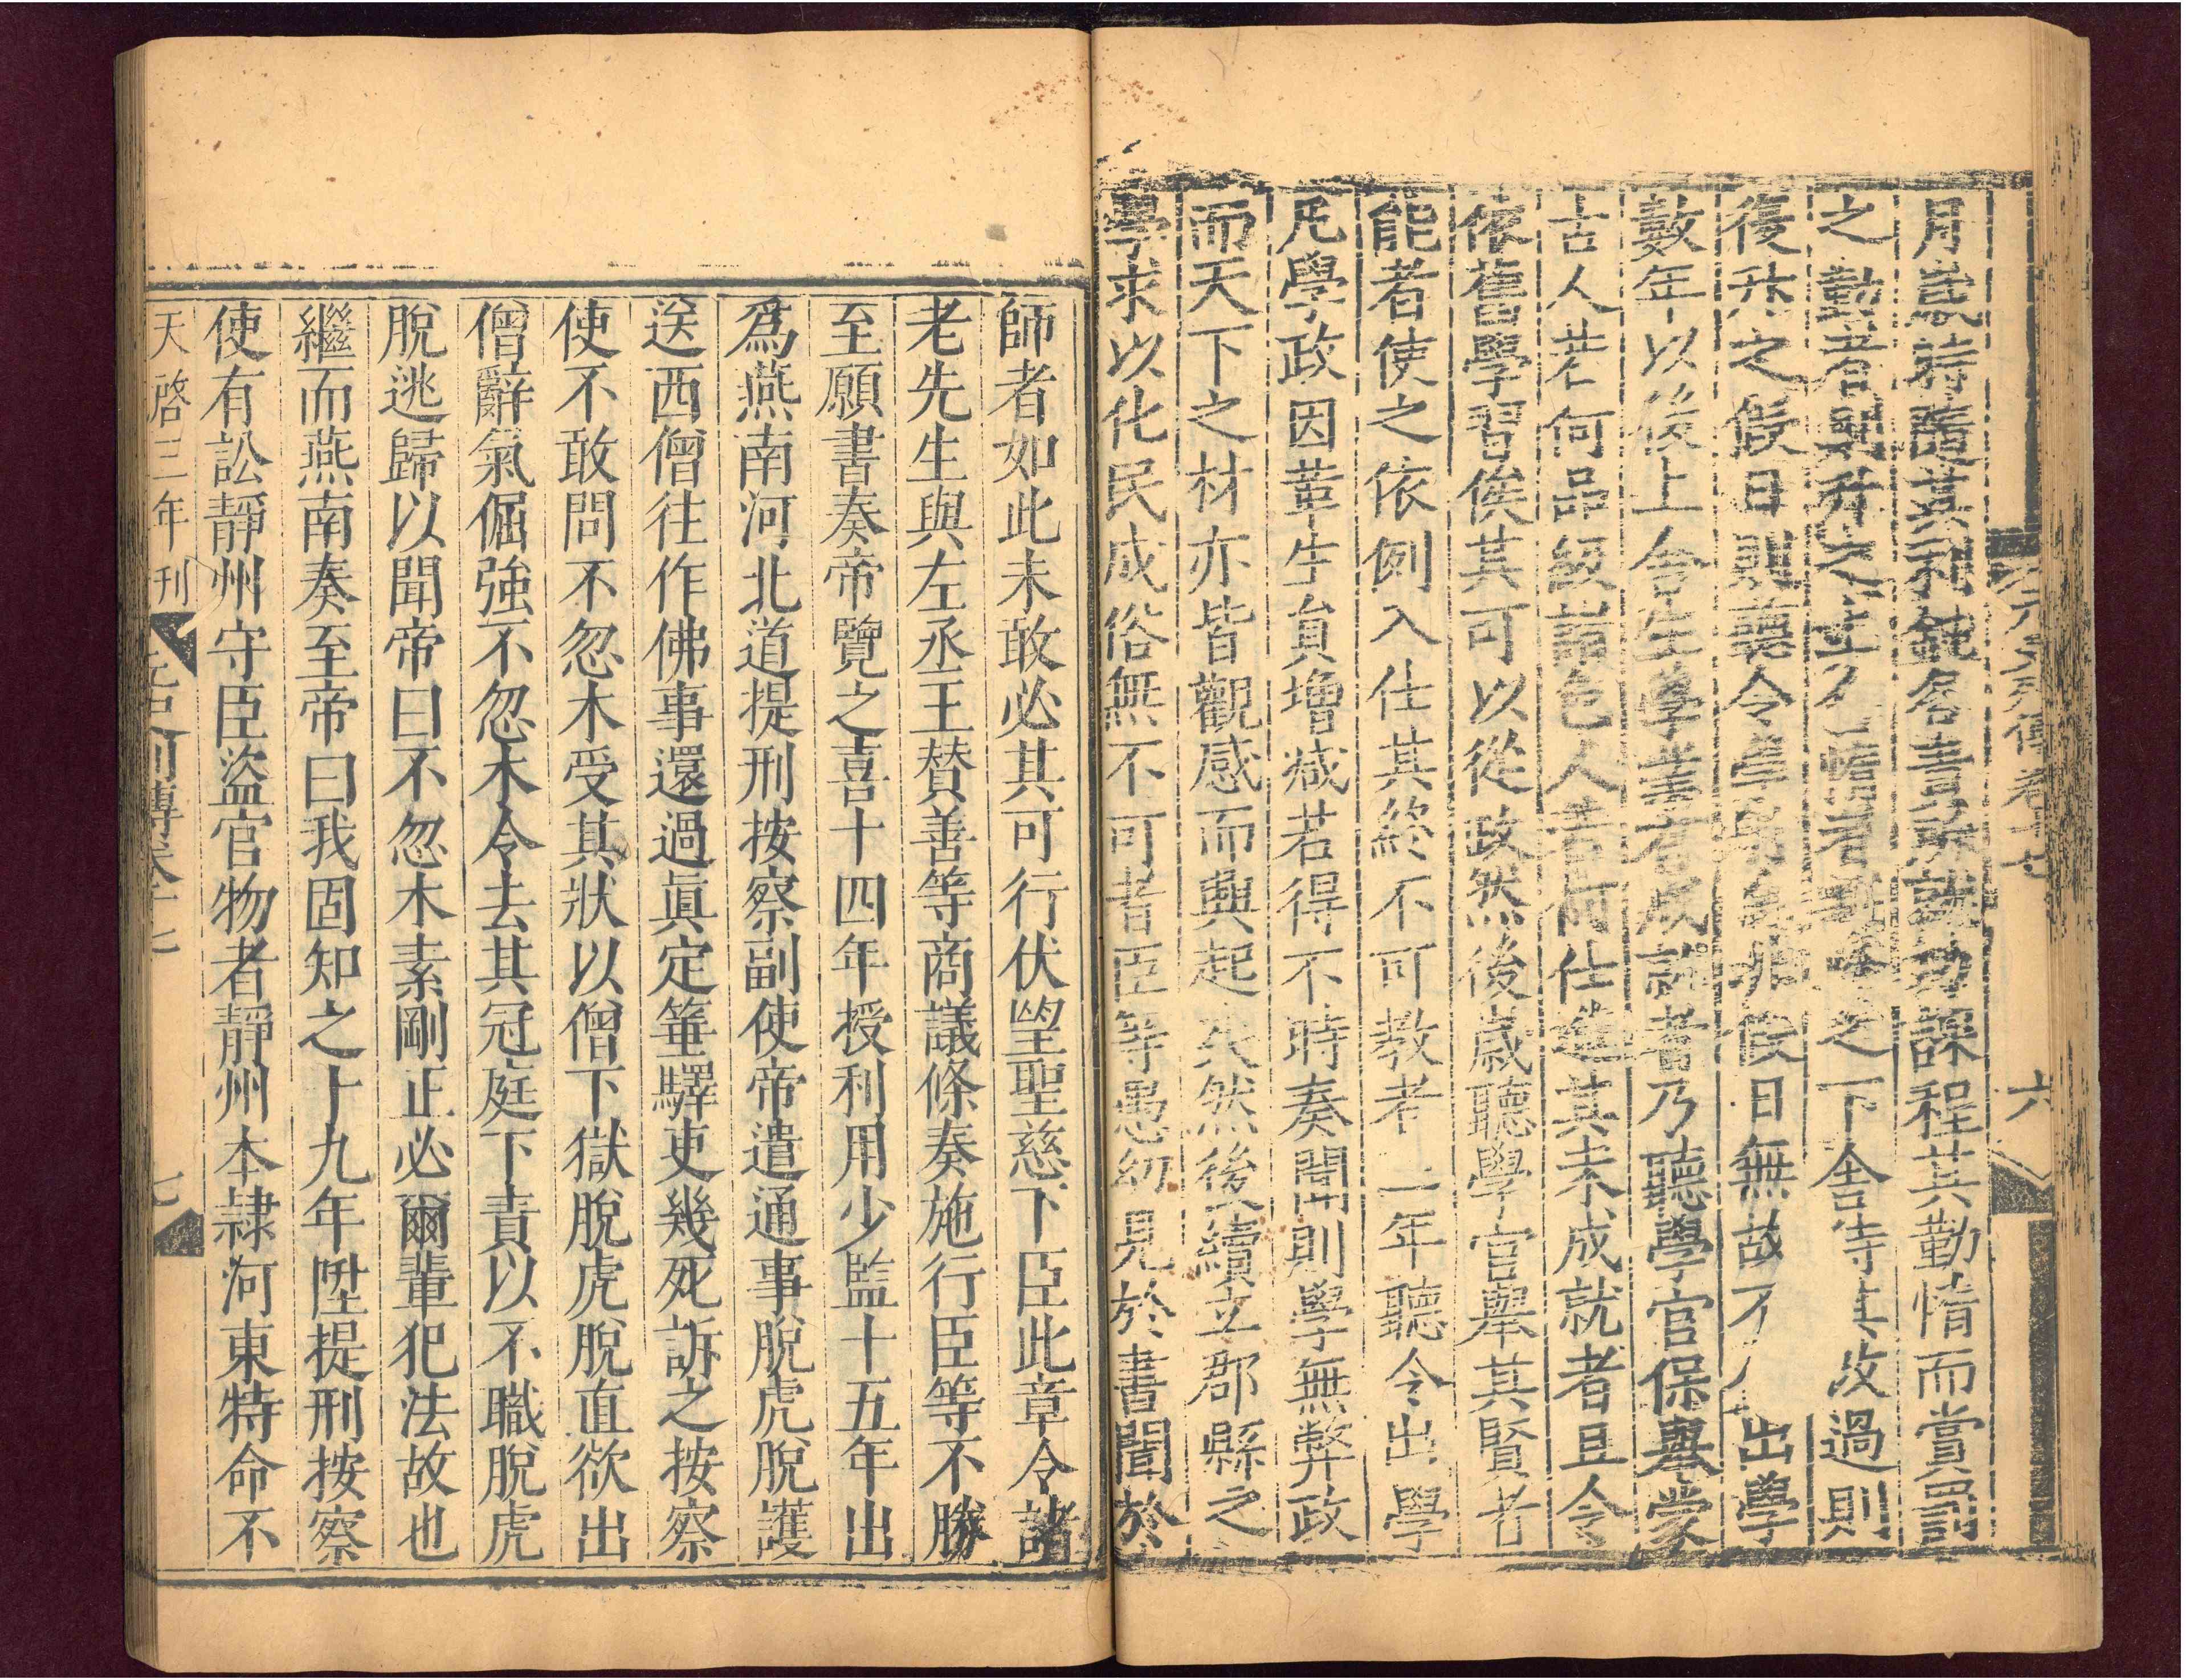 元史列傳卷十七 六
月歲時隨其利鈍各責所就功課程其勤惰而賞罰
之勤者則升之上舍惰者則降之下舍待其改過則
復升之假日則聽令學射自非假日無故不令出學
數年以後上舍生學業有成就者乃聽學官保舉蒙
古人若何品級諸色人若何仕進其未成就者且令
依舊學習俟其可以從政然後歲聽學官舉其賢者
能者使之依例入仕其終不可教者三年聽令出學
凡學政因革生員增減若得不時奏聞則學無弊政
而天下之材亦皆觀感而興起矣然後續立郡縣之
學求以化民成俗無不可者臣等愚幼見於書聞於
師者如此未敢必其可行伏望聖慈下臣此章令諸
老先生與左丞王贊善等商議條奏施行臣等不勝
至願書奏帝覽之喜十四年授利用少監十五年出
爲燕南河北道提刑按察副使帝遣通事脫虎脫護
送西僧往作佛事還過眞定箠驛吏幾死訴之按察
使不敢問不忽木受其狀以僧下獄脫虎脫直欲出
僧辭氣倔強不忽木令去其冠庭下責以不職脫虎
脫逃歸以聞帝曰不忽木素剛正必爾輩犯法故也
繼而燕南奏至帝曰我固知之十九年陞提刑按察
使有訟靜州守臣盜官物者靜州本隷河東特命不
天啓三年刊 元史列傳卷十七 七